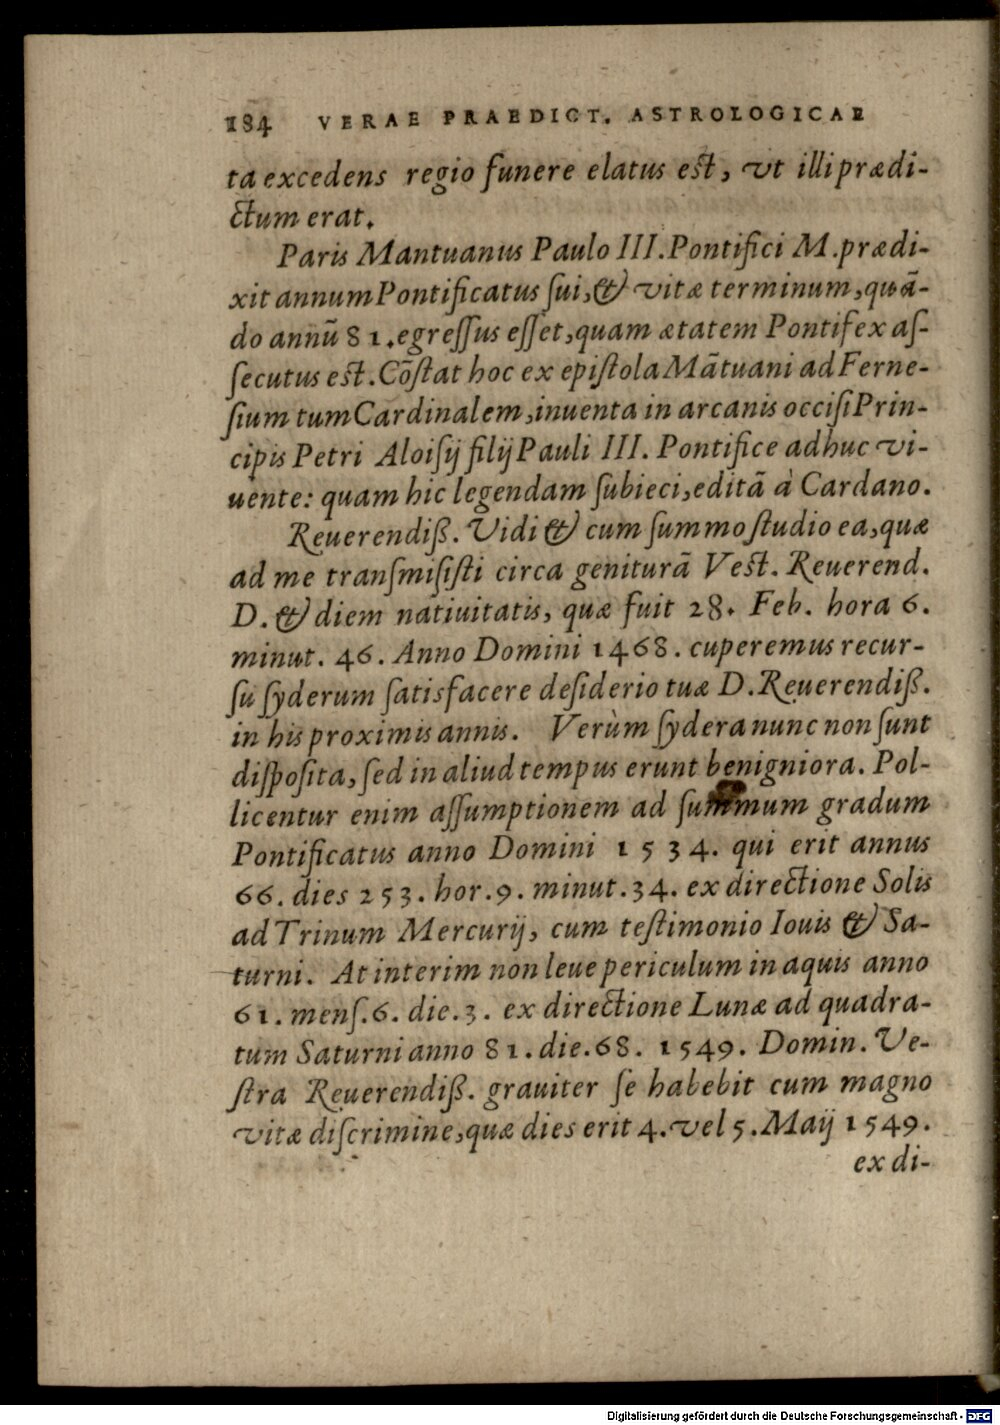 184 VERAE PRAEDICT. ASTROLOGICAE
ta excedens regio funere elatus est, vt illi prædi-
ctum erat.
Paris Mantuanus Paulo III. Pontifici M. prædi-
xit annum Pontificatus ſui, & vitæ terminum, quā-
do annū 81. egreſſus eſſet, quam ætatem Pontifex aſ-
ſecutus est. Cōſtat hoc ex epiſtola Mātuani ad Ferne-
ſium tum Cardinalem, inuenta in arcanis occiſi Prin-
cipis Petri Aloiſij filij Pauli III. Pontifice adhuc vi-
uente: quam hic legendam ſubieci, editā à Cardano.
Reuerendiß. Vidi & cum ſummo ſtudio ea, quæ
ad me tranſmiſiſti circa geniturā Vest. Reuerend.
D. & diem natiuitatis, quæ fuit 28. Feb. hora 6.
minut. 46. Anno Domini 1468. cuperemus recur-
ſu ſyderum ſatisfacere deſiderio tuæ D. Reuerendiß.
in his proximis annis. Verùm ſydera nunc non ſunt
diſpoſita, ſed in aliud tempus erunt benigniora. Pol-
licentur enim aſſumptionem ad ſummum gradum
Pontificatus anno Domini 1534. qui erit annus
66. dies 253. hor. 9. minut. 34. ex directione Solis
ad Trinum Mercurij, cum teſtimonio Iouis & Sa-
turni. At interim non leue periculum in aquis anno
61. menſ. 6. die. 3. ex directione Lunæ ad quadra-
tum Saturni anno 81. die. 68. 1549. Domin. Ve-
ſtra Reuerendiß. grauiter ſe habebit cum magno
vitæ diſcrimine, quæ dies erit 4. vel 5. Maij 1549.
ex di-
Digitalisierung gefördert durch die Deutsche Forschungsgemeinschaft - DFG